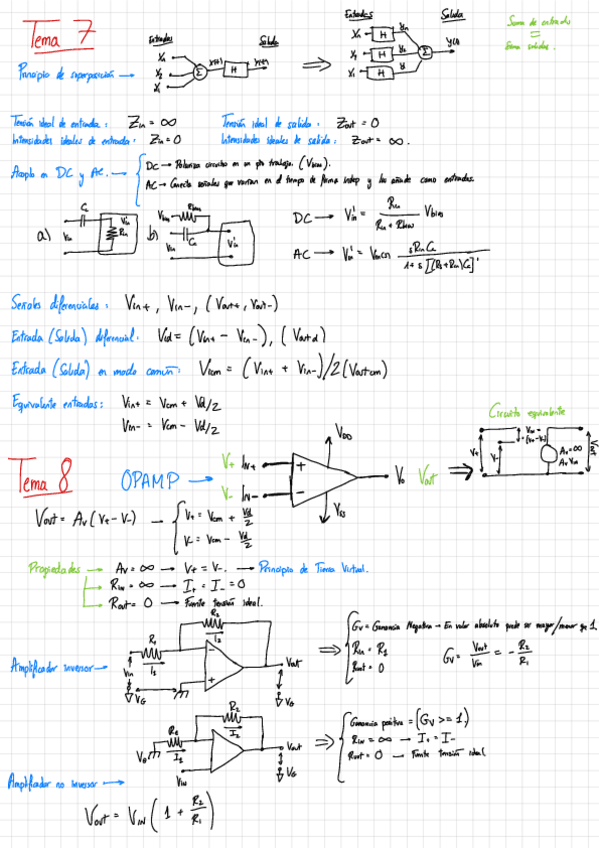 Tema 7
Principio de superposición →
Entradas
Salida
X₁
X₂
X₃
Σ
H
y(t)
⇒
Entradas
Salida
H
H
H
Σ
y(t)
Suma de entradas
=
Suma salidas.
Tensión ideal de entrada: Zin = ∞
Tensión ideal de salida: Zout = 0
Intensidades ideales de entrada: Zin = 0
Intensidades ideales de salida: Zout = ∞.
Acoplo en DC y AC. →
DC → Polariza circuito en un pto trabajo. (Vbias).
AC → Conecta señales que varían en el tiempo de forma indep y las añade como entradas.
a)
Vin
Vin'
Rin
b)
Vbias
Rbias
Vin
Vin'
DC → Vin' = Rin / (Rin + Rbias) Vbias
AC →
Señales diferenciales: Vin+, Vin-, (Vout+, Vout-)
Entrada (Salida) diferencial: Vid = (Vin+ - Vin-), (Voutd)
Entrada (Salida) en modo común: Vicm = (Vin+ + Vin-)/2 (Voutcm)
Equivalente entradas: Vin+ = Vcm + Vd/2
Vin- = Vcm - Vd/2
Circuito equivalente
Tema 8
OPAMP →
V+ IN+
V- IN-
+
-
VDD
VSS
Vo Vout
⇒
V+
V-
Av=∞
Vout
Vout = Av(V+ - V-) →
V+ = Vcm + Vd/2
V- = Vcm - Vd/2
Propiedades → Av = ∞ → V+ = V-. → Principio de Tierra Virtual.
Rin = ∞ → I+ = I- = 0
Rout = 0 → Fuente tensión ideal.
Amplificador inversor →
Vin
R1
I1
R2
I2
-
+
Vout
VG
VG
⇒
Gv = Ganancia Negativa → En valor absoluto puede ser mayor/menor que 1.
Rin = R1
Rout = 0
Gv = Vout/Vin = - R2/R1
Amplificador no inversor →
VG
R1
I1
R2
I2
-
+
VIN
Vout
VG
⇒
Ganancia positiva = (Gv >= 1)
Rin = ∞ → I+ = I-
Rout = 0 → Fuente tensión ideal
Vout = VIN (1 + R2/R1)